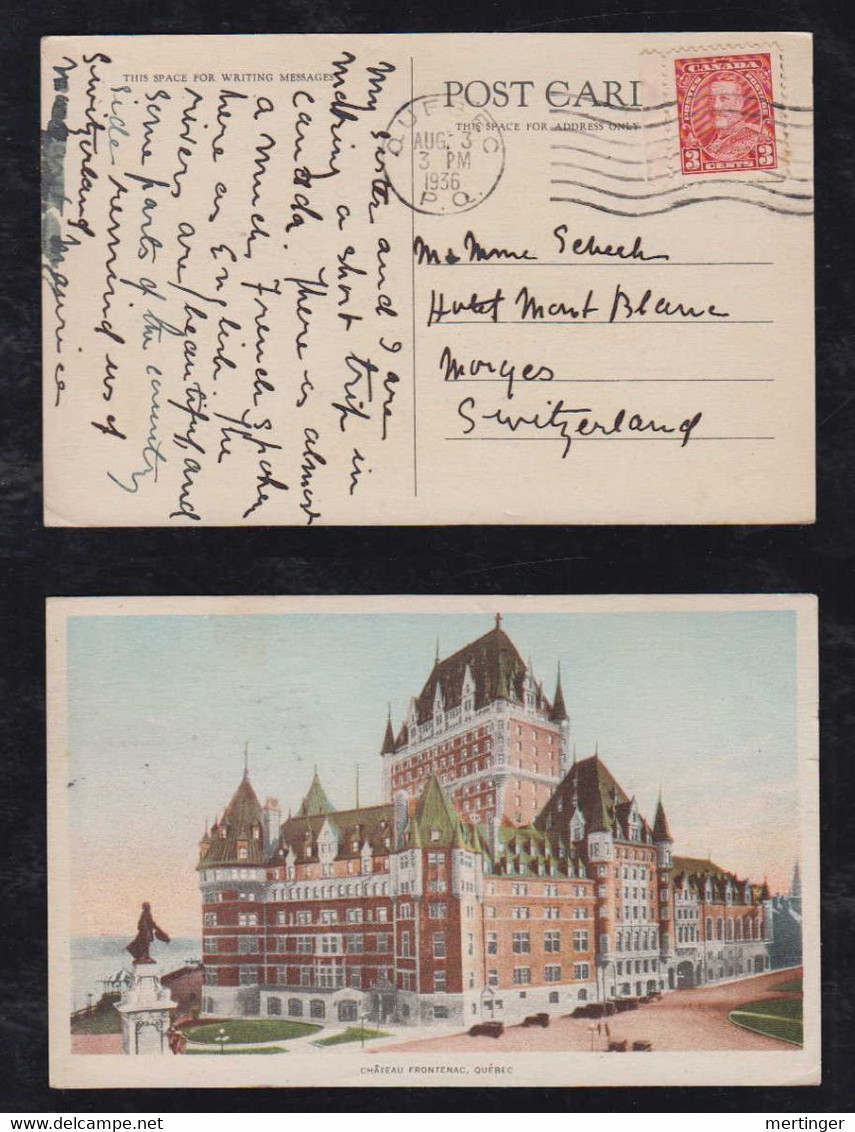 THIS SPACE FOR WRITING MESSAGES
My sister and I are
making a short trip in
Canada. There is almost
as much French spoken
here as English. The
rivers are beautiful, and
some parts of the country
side remind us of
Switzerland.
Maurice
POST CARD
THIS SPACE FOR ADDRESS ONLY
QUEBEC
AUG. 3
3 PM
1936
P.Q.
CANADA
POSTES POSTAGE
3 CENTS 3
M & Mme Scheck
Hotel Mont Blanc
Morges
Switzerland
CHÂTEAU FRONTENAC, QUÉBEC
mertinger